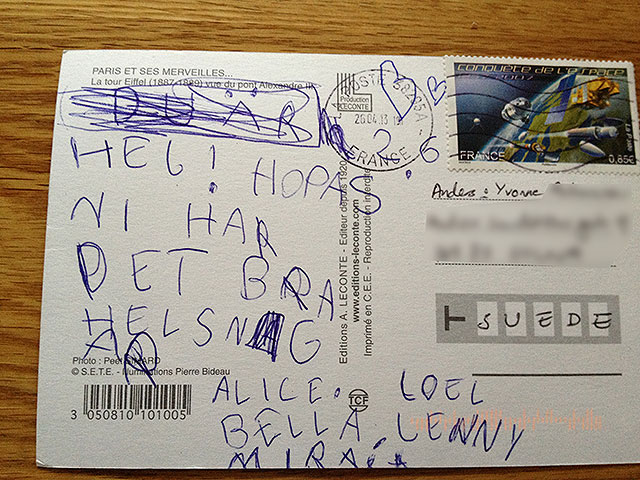 PARIS ET SES MERVEILLES...
La tour Eiffel (1887-1889) vue du pont Alexandre III
DUÄR
HEJ!
HOPAS
NI HAR
DET BRA
HELSNAG
AD
ALICE. LOEL
BELLA. LENNY
MIRA
Photo : Peet SIMARD
© S.E.T.E. - Illuminations Pierre Bideau
3 050810 101005
Production
LECONTE
26.04.13
FRANCE
Editions A. LECONTE - Editeur depuis 1920
www.editions-leconte.com
Imprimé en C.E.E. - Reproduction interdite
TCF
CONQUÊTE DE L'ESPACE
2007
FRANCE
0,85€
Anders : Yvonne
T SUEDE